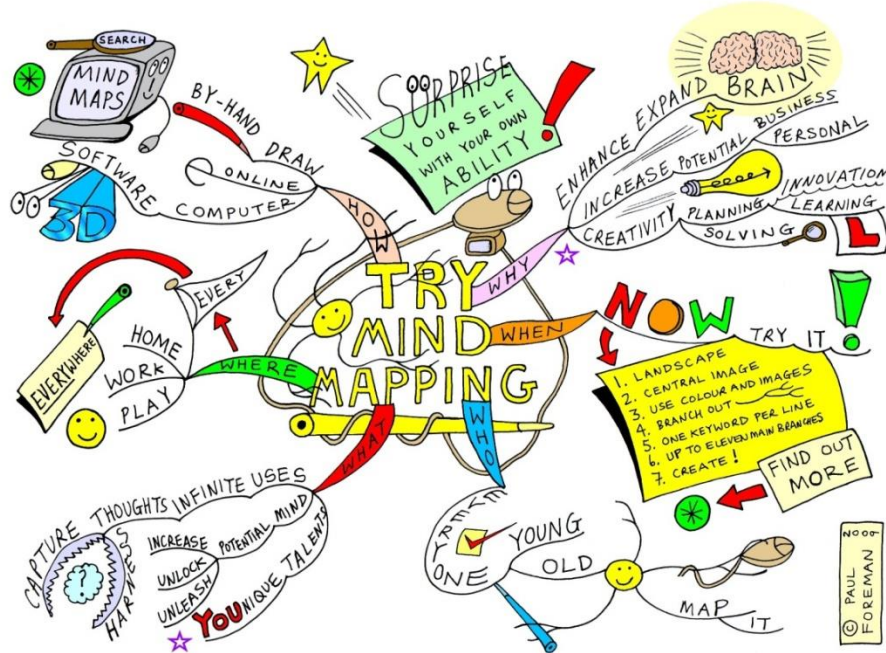 TRY
MIND
MAPPING
HOW
DRAW
BY-HAND
ONLINE
COMPUTER
SOFTWARE
3D
SEARCH
MIND
MAPS
SURPRISE
YOURSELF
WITH YOUR OWN
ABILITY!
WHY
ENHANCE EXPAND BRAIN
INCREASE POTENTIAL BUSINESS
PERSONAL
CREATIVITY PLANNING INNOVATION
LEARNING
SOLVING
L
WHEN
NOW
TRY IT!
1. LANDSCAPE
2. CENTRAL IMAGE
3. USE COLOUR AND IMAGES
4. BRANCH OUT
5. ONE KEYWORD PER LINE
6. UP TO ELEVEN MAIN BRANCHES
7. CREATE!
FIND OUT
MORE
WHO
EVERYONE
YOUNG
OLD
MAP
IT
WHAT
INFINITE USES
THOUGHTS
CAPTURE
HARNESS
?
MIND
POTENTIAL
INCREASE
UNLOCK
UNLEASH
YOUNIQUE TALENTS
WHERE
EVERY
HOME
WORK
PLAY
EVERYWHERE
© PAUL
FOREMAN
2009